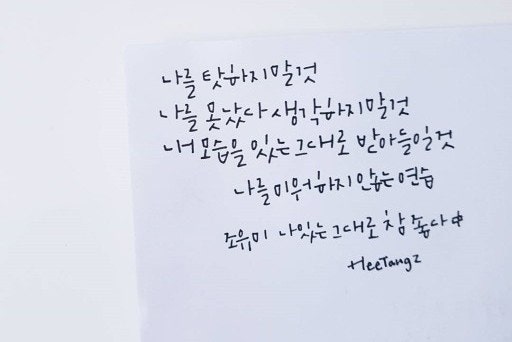 나를 탓하지말것
나를 못났다 생각하지말것
내 모습을 있는그대로 받아들일것
나를 미워하지 않는 연습
조유미 나있는그대로 참 좋다 中
HeeTangz